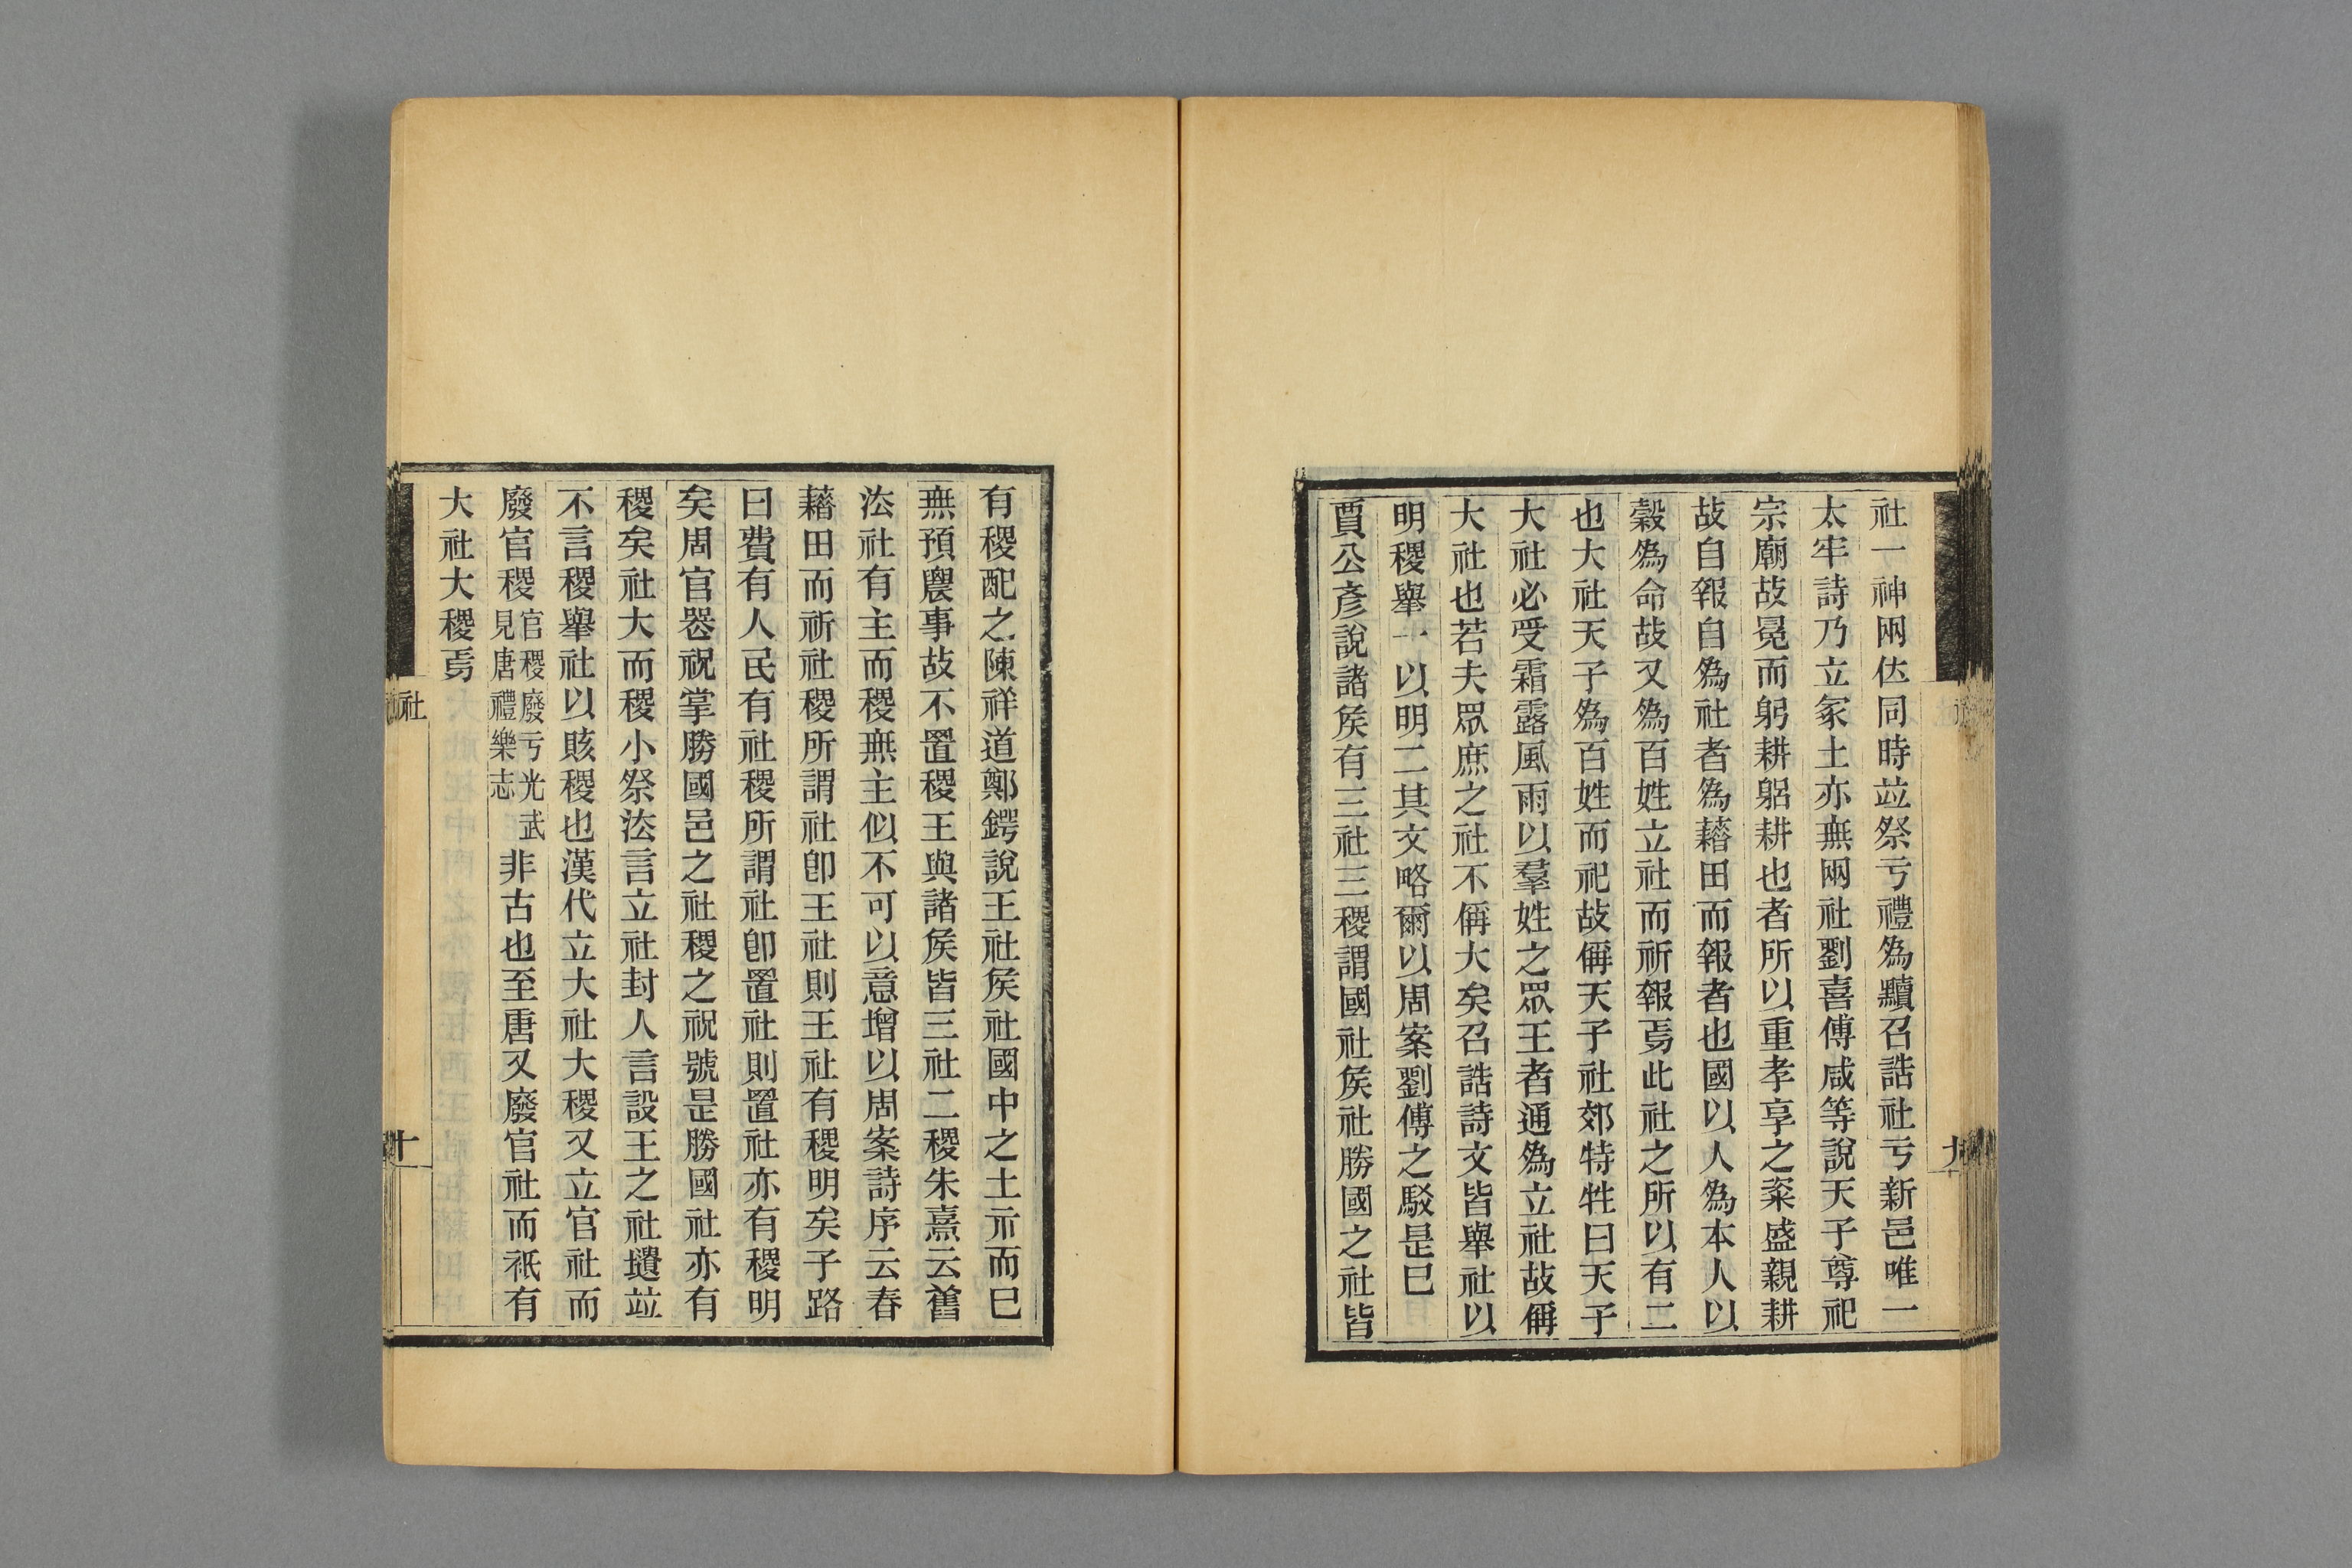 社一神兩位同時竝祭亏禮爲黷召誥社亏新邑唯一
太牢詩乃立冢土亦無兩社劉喜傅咸等說天子尊祀
宗廟故冕而躬耕躬耕也者所以重孝享之粢盛親耕
故自報自爲社者爲藉田而報者也國以人爲本人以
穀爲命故又爲百姓立社而祈報焉此社之所以有二
也大社天子爲百姓而祀故偁天子社郊特牲曰天子
大社必受霜露風雨以羣姓之眾王者通爲立社故偁
大社也若夫眾庶之社不偁大矣召誥詩文皆舉社以
明稷舉一以明二其文略爾以周案劉傅之駁是巳
賈公彥說諸矦有三社三稷謂國社矦社勝國之社皆
有稷配之陳祥道鄭鍔說王社矦社國中之土示而巳
無預農事故不置稷王與諸矦皆三社二稷朱熹云舊
法社有主而稷無主似不可以意增以周案詩序云春
藉田而祈社稷所謂社卽王社則王社有稷明矣子路
曰費有人民有社稷所謂社卽置社則置社亦有稷明
矣周官喪祝掌勝國邑之社稷之祝號是勝國社亦有
稷矣社大而稷小祭法言立社封人言設王之社壝竝
不言稷舉社以賅稷也漢代立大社大稷又立官社而
廢官稷官稷廢亏光武見唐禮樂志非古也至唐又廢官社而祇有
大社大稷焉
社
十